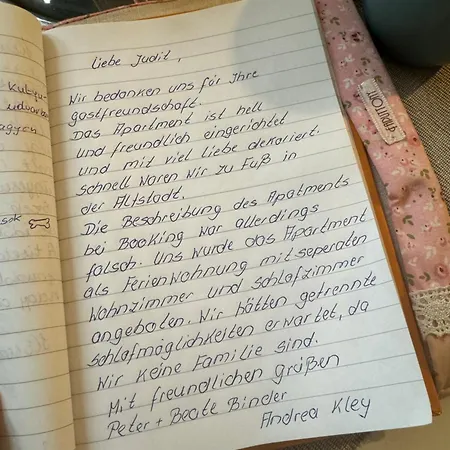 Liebe Judit,
Wir bedanken uns für Ihre
gastfreundschaft.
Das Apartment ist hell
und freundlich eingerichtet
und mit viel Liebe dekoriert.
schnell waren wir zu Fuß in
der Altstadt.
Die Beschreibung des Apatments
bei Booking war allerdings
falsch. Uns wurde das Apartment
als Ferienwohnung mit seperaten
Wohnzimmer und schlafzimmer
angeboten. Wir hätten getrennte
schlafmöglichkeiten erwartet, da
Wir keine Familie sind.
Mit freundlichen grüßen
Peter + Beate Binder
Andrea Kley